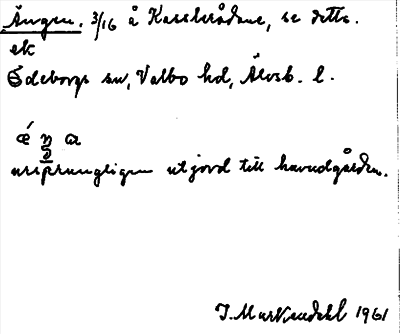 Ängen. 3/16 å Kasslerådane, se detta.
ek
Ödeborgs sn, Valbo hd, Älvsb. l.
ǽ ŋ a
ursprungligen utjord till huvudgården.
J. Markendahl 1961